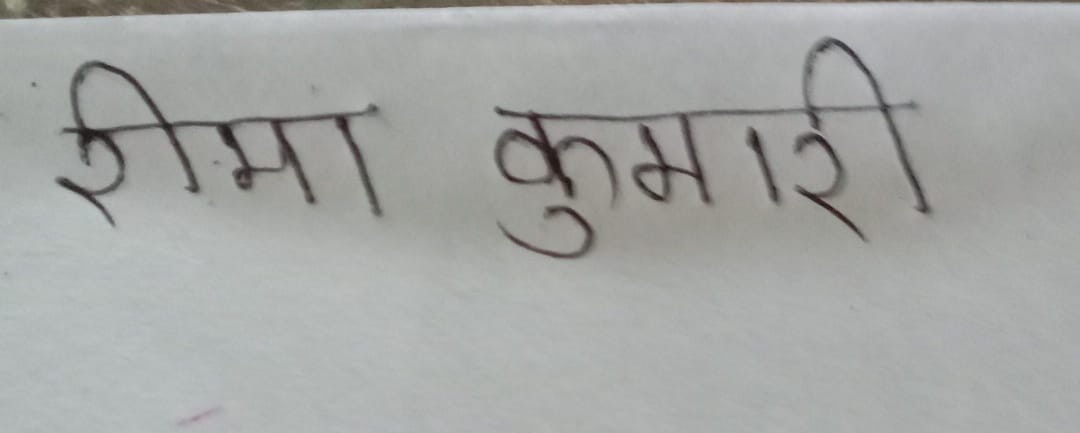 रीमा कुमारी